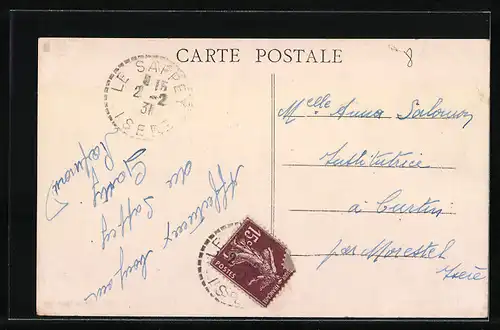 CARTE POSTALE
8
LE SAPPEY
15
2 -2
31
ISERE
Affectueux bonjour
du Sappey.
Raymond
15c
POSTES
Melle Anna Salomon
Institutrice
à Curtin
par Morestel
Isère